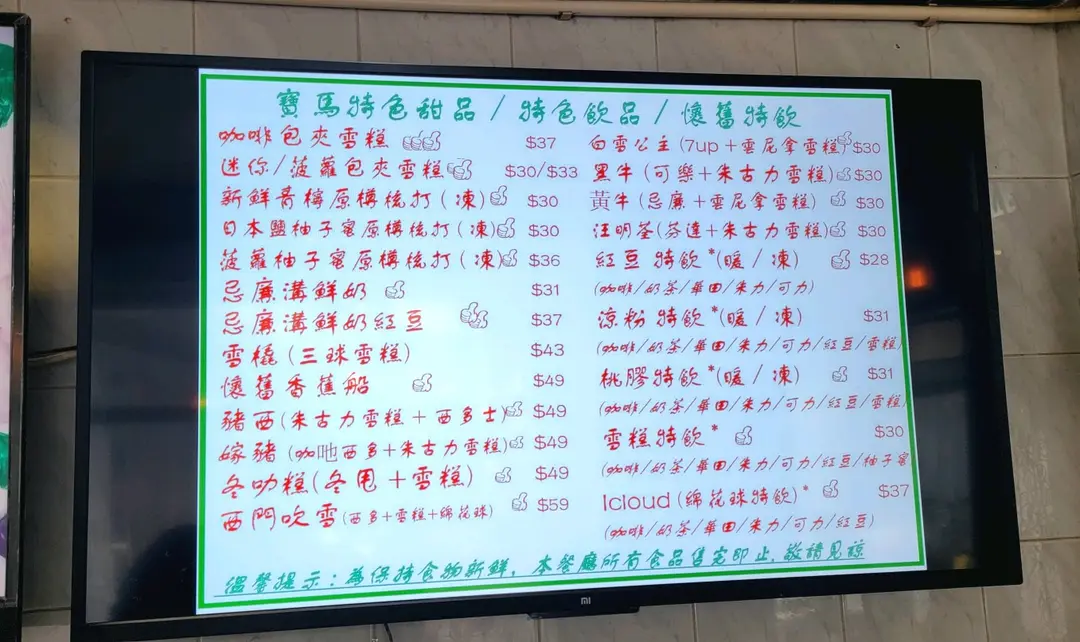 寶馬特色甜品 / 特色飲品 / 懷舊特飲
咖啡包夾雪糕 $37
迷你/菠蘿包夾雪糕 $30/$33
新鮮青檸原樽梳打(凍) $30
日本鹽柚子蜜原樽梳打(凍) $30
菠蘿柚子蜜原樽梳打(凍) $36
忌廉溝鮮奶 $31
忌廉溝鮮奶紅豆 $37
雪橇(三球雪糕) $43
懷舊香蕉船 $49
豬西(朱古力雪糕+西多士) $49
嫁豬(咖吔西多+朱古力雪糕) $49
冬叻糕(冬甩+雪糕) $49
西門吹雪(西多+雪糕+綿花球) $59
白雪公主(7up+雲尼拿雪糕) $30
黑牛(可樂+朱古力雪糕) $30
黃牛(忌廉+雲尼拿雪糕) $30
汪明荃(芬達+朱古力雪糕) $30
紅豆特飲*(暖/凍) $28
(咖啡/奶茶/華田/朱力/可力)
涼粉特飲*(暖/凍) $31
(咖啡/奶茶/華田/朱力/可力/紅豆/雪糕
桃膠特飲*(暖/凍) $31
(咖啡/奶茶/華田/朱力/可力/紅豆/雪糕
雪糕特飲* $30
(咖啡/奶茶/華田/朱力/可力/紅豆/柚子蜜
Icloud(綿花球特飲)* $37
(咖啡/奶茶/華田/朱力/可力/紅豆)
溫馨提示:為保持食物新鮮,本餐廳所有食品售完即止,敬請見諒
mi